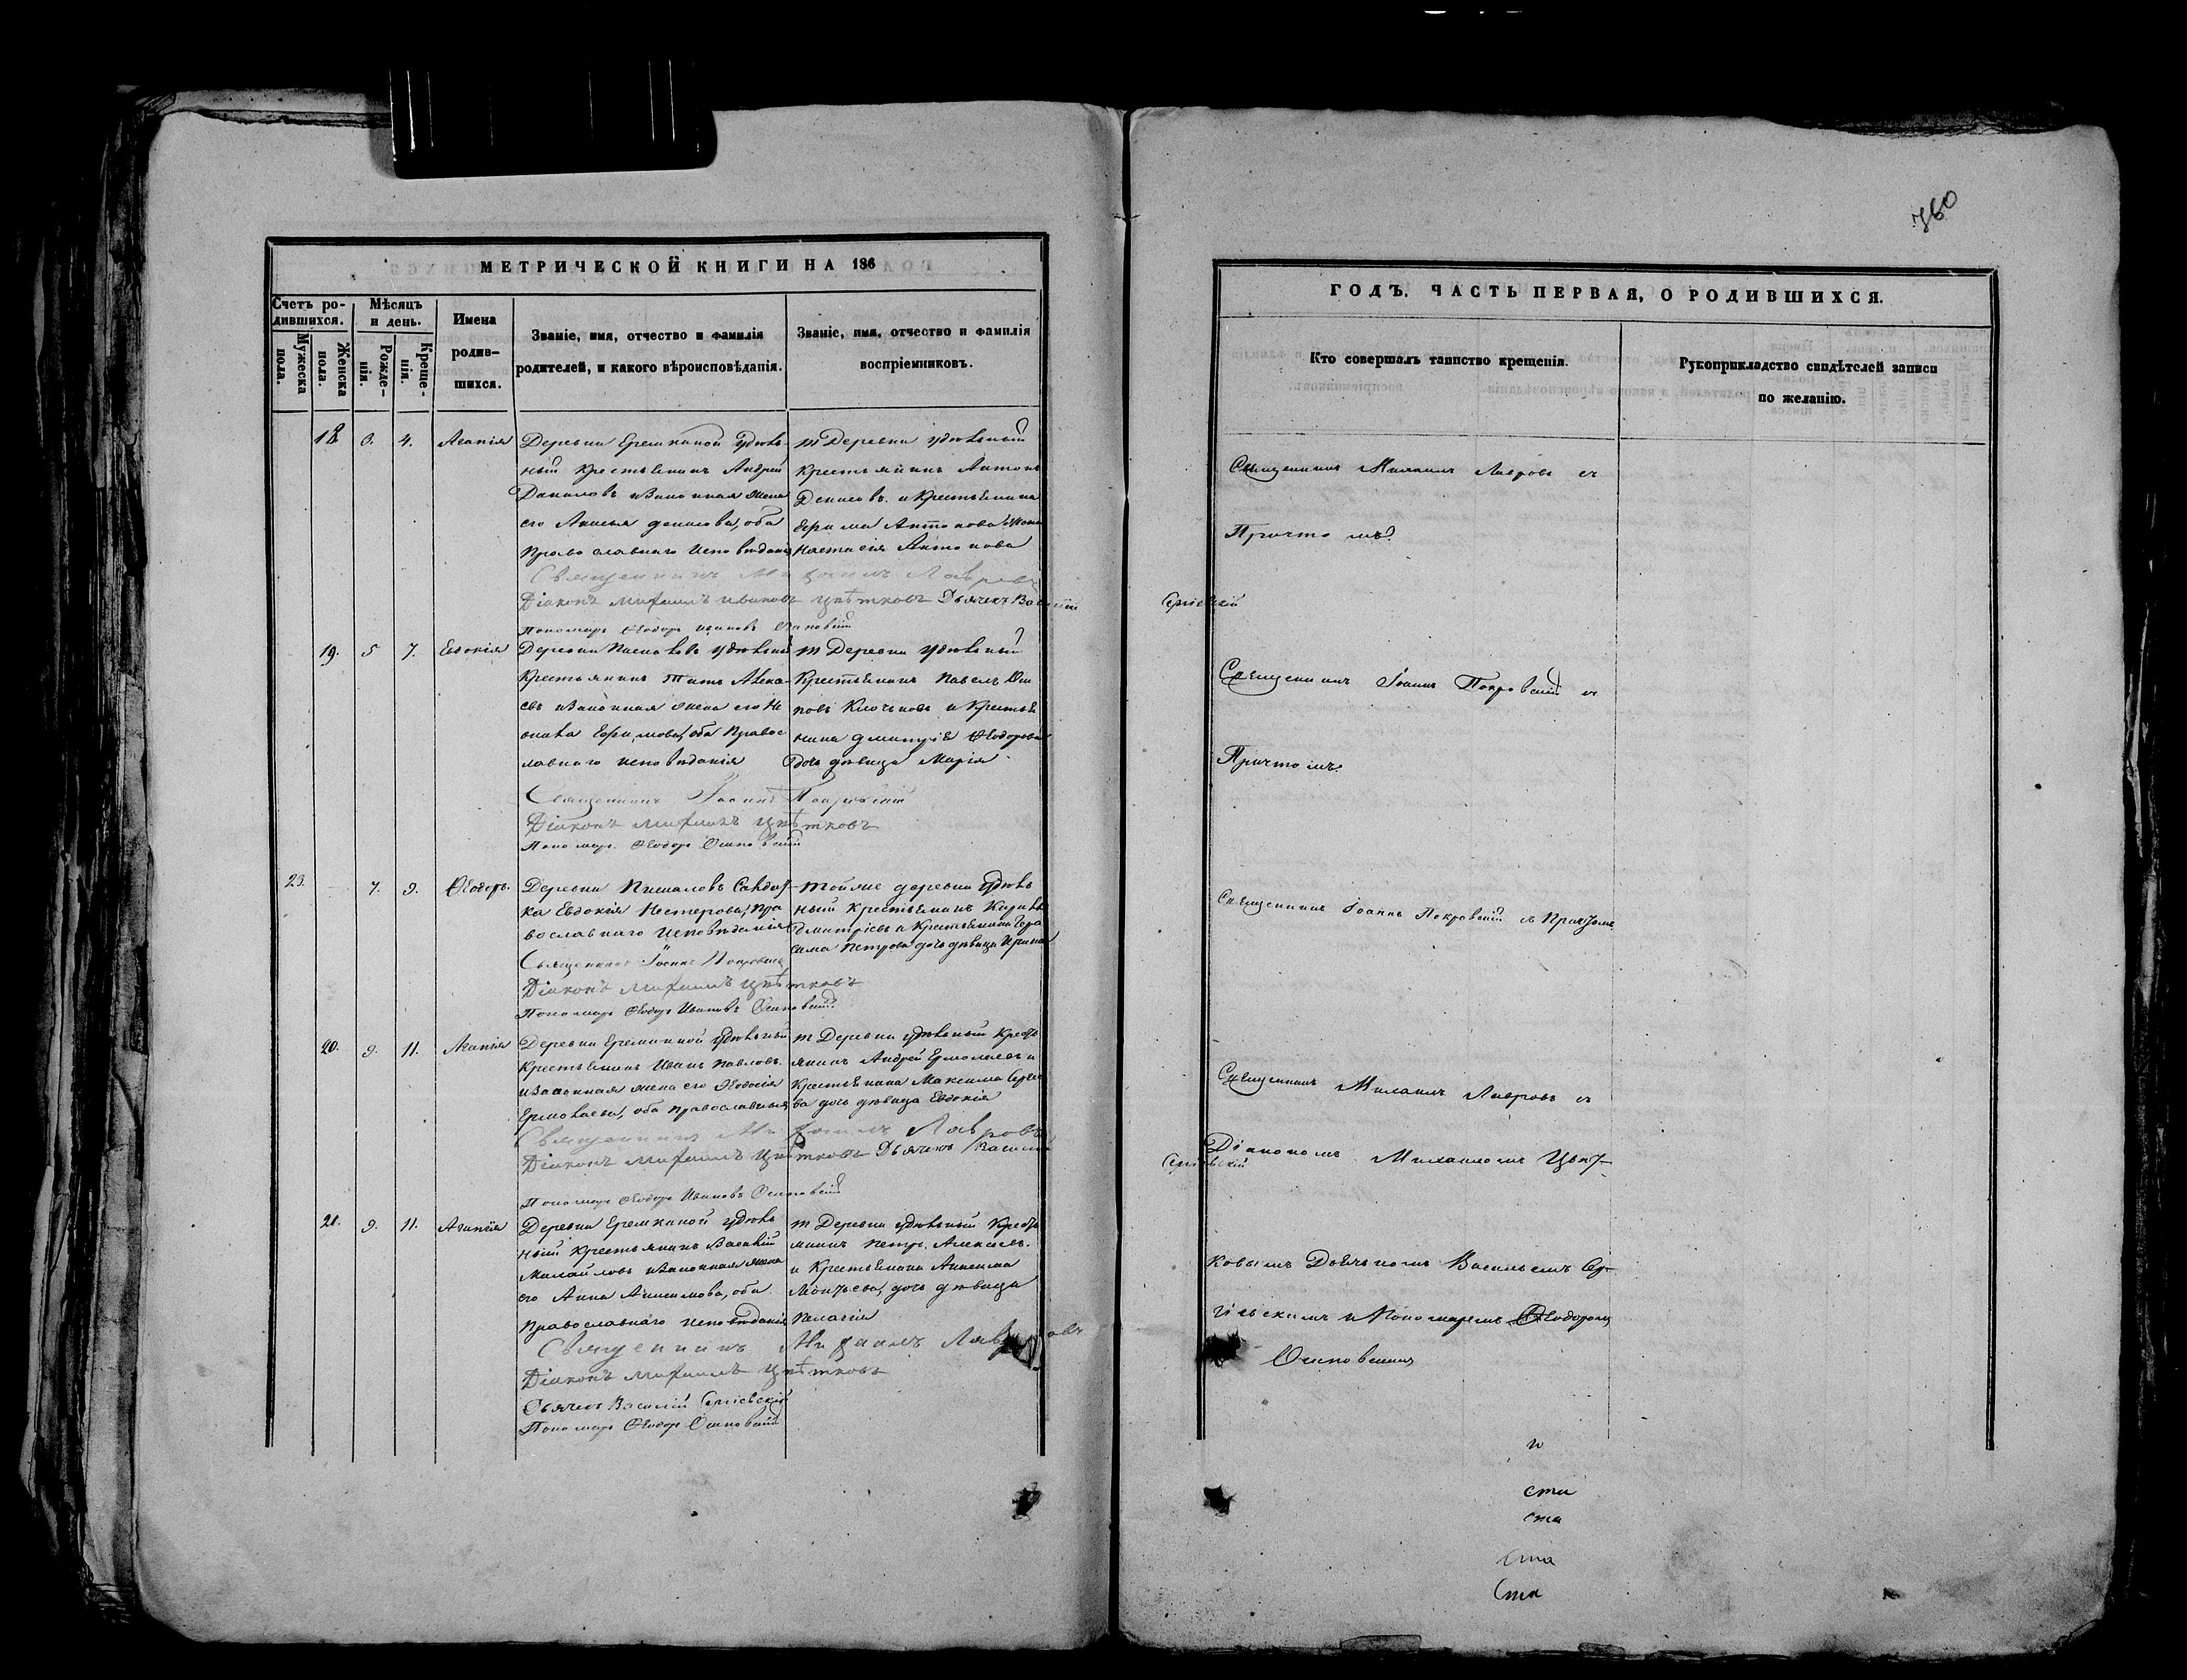 МЕТРИЧЕСКОЙ КНИГИ НА 186
Счетъ ро-
дившихся.
Мужеска пола.
Женска пола.
Мѣсяцъ
и день.
Рожде-
нія.
Креще-
нія.
Имена
родив-
шихся.
Званіе, имя, отчество и фамилія
родителей, и какого вѣроисповѣданія.
Званіе, имя, отчество и фамилія
воспріемниковъ.
18 4. Агапія
Деревни удѣль-
ный крестьянинъ Андрей
Даниловъ и законная жена
его Денисова, оба
Православнаго исповѣданія
Деревни удѣльный
крестьянинъ Антонъ
Денисовъ и крестьянина
Антонова
Настасія Антонова
Священникъ Михаилъ Лавровъ
Діаконъ Михаилъ Ивановъ Цвѣтковъ Дьячекъ Василій Сергіевскій
Пономарь Ѳеодоръ Ивановъ Осиповскій
19. 5 7. Евдокія
Деревни удѣльный
крестьянинъ Титъ
и законная жена его
Ефимова, оба Правос
лавнаго исповѣданія
Деревни удѣльный
крестьянинъ Павелъ
Клочковъ и крестья
нина Дмитрія Ѳеодорова
дочь дѣвица Марія
Священникъ Іоаннъ Покровскій
Діаконъ Михаилъ Цвѣтковъ
Пономарь Ѳеодоръ Осиповскій
23. 7. 9. Ѳеодоръ.
Деревни Солдат-
ка Евдокія Нестерова, Пра
вославнаго исповѣданія
тойже деревни удѣль
ный крестьянинъ
Дмитріевъ и крестьянина Гера
сима Петрова дочь дѣвица Ирина
Священникъ Іоаннъ Покровскій
Діаконъ Михаилъ Цвѣтковъ
Пономарь Ѳеодоръ Ивановъ Осиповскій
20. 9. 11. Агапія
Деревни удѣльный
крестьянинъ Иванъ Павловъ
и законная жена его Ѳеодосія
Ермолаева, оба православныя
Деревни удѣльный кресть
янинъ Андрей Ермолаевъ и
крестьянина Максима Сергее
ва дочь дѣвица Евдокія
Священникъ Михаилъ Лавровъ
Діаконъ Михаилъ Цвѣтковъ Дьячекъ Василій Сергіевскій
Пономарь Ѳеодоръ Ивановъ Осиповскій
21. 9. 11. Агапія
Деревни удѣль
ный крестьянинъ Василій
Михайловъ и законная жена
его Анна Анисимова, оба
Православнаго исповѣданія
Деревни удѣльный кресть
янинъ Петръ Алексѣевъ
и крестьянина
дочь дѣвица
Пелагія
Священникъ Михаилъ Лавровъ
Діаконъ Михаилъ Цвѣтковъ
Дьячекъ Василій Сергіевскій
Пономарь Ѳеодоръ Осиповскій
760
ГОДЪ. ЧАСТЬ ПЕРВАЯ, О РОДИВШИХСЯ.
Кто совершалъ таинство крещенія.
Рукоприкладство свидѣтелей записи
по желанію.
Священникъ Михаилъ Лавровъ съ
Причтомъ
Священникъ Іоаннъ Покровскій съ
Причтомъ.
Священникъ Іоаннъ Покровскій съ Причтомъ
Священникъ Михаилъ Лавровъ съ
Діакономъ Михаиломъ Цвѣт-
ковымъ Дьячкомъ Васильемъ Сер-
гіевскимъ и Пономаремъ Ѳеодоромъ
Осиповскимъ
и
сти
ста
ста
ста